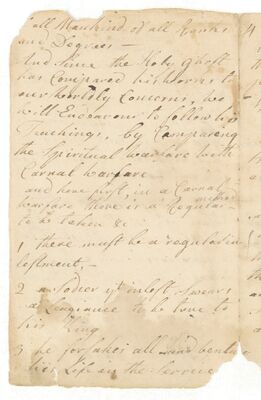 all Mankind of all Ranks
and Degrees —
And since the Holy Ghost
has Compared his
our worldly Concerns, we
will Endeavour to follow his
Teachings, by Compareing
the Spiritual warfare with
Carnal warfare
and here first, in a Carnal
warfare there is a Regular
method
to be taken &c
1 there must be a regular in
lestment, —
2 a Soder yt inlest Swears
a to be true to
his King
3 he forsakes all and
his Life in the Service